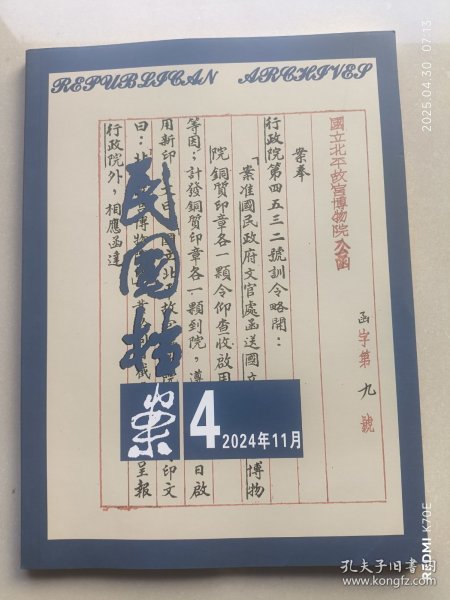 REPUBLICAN ARCHIVES
國立北平故宫博物院公函
函字第九號
案奉
行政院第四五三二號訓令略開：
「案准國民政府文官處函送國立
博物
院銅質印章各一顆令仰查收啟用
等因；計發銅質印章各一顆到院，
日啟
用新印
印文
曰：
呈報
行政院外，相應函達
民國档案
4
2024年11月
2025.04.30 07:13
REDMI K70E
孔夫子旧书网
www.kongfz.com